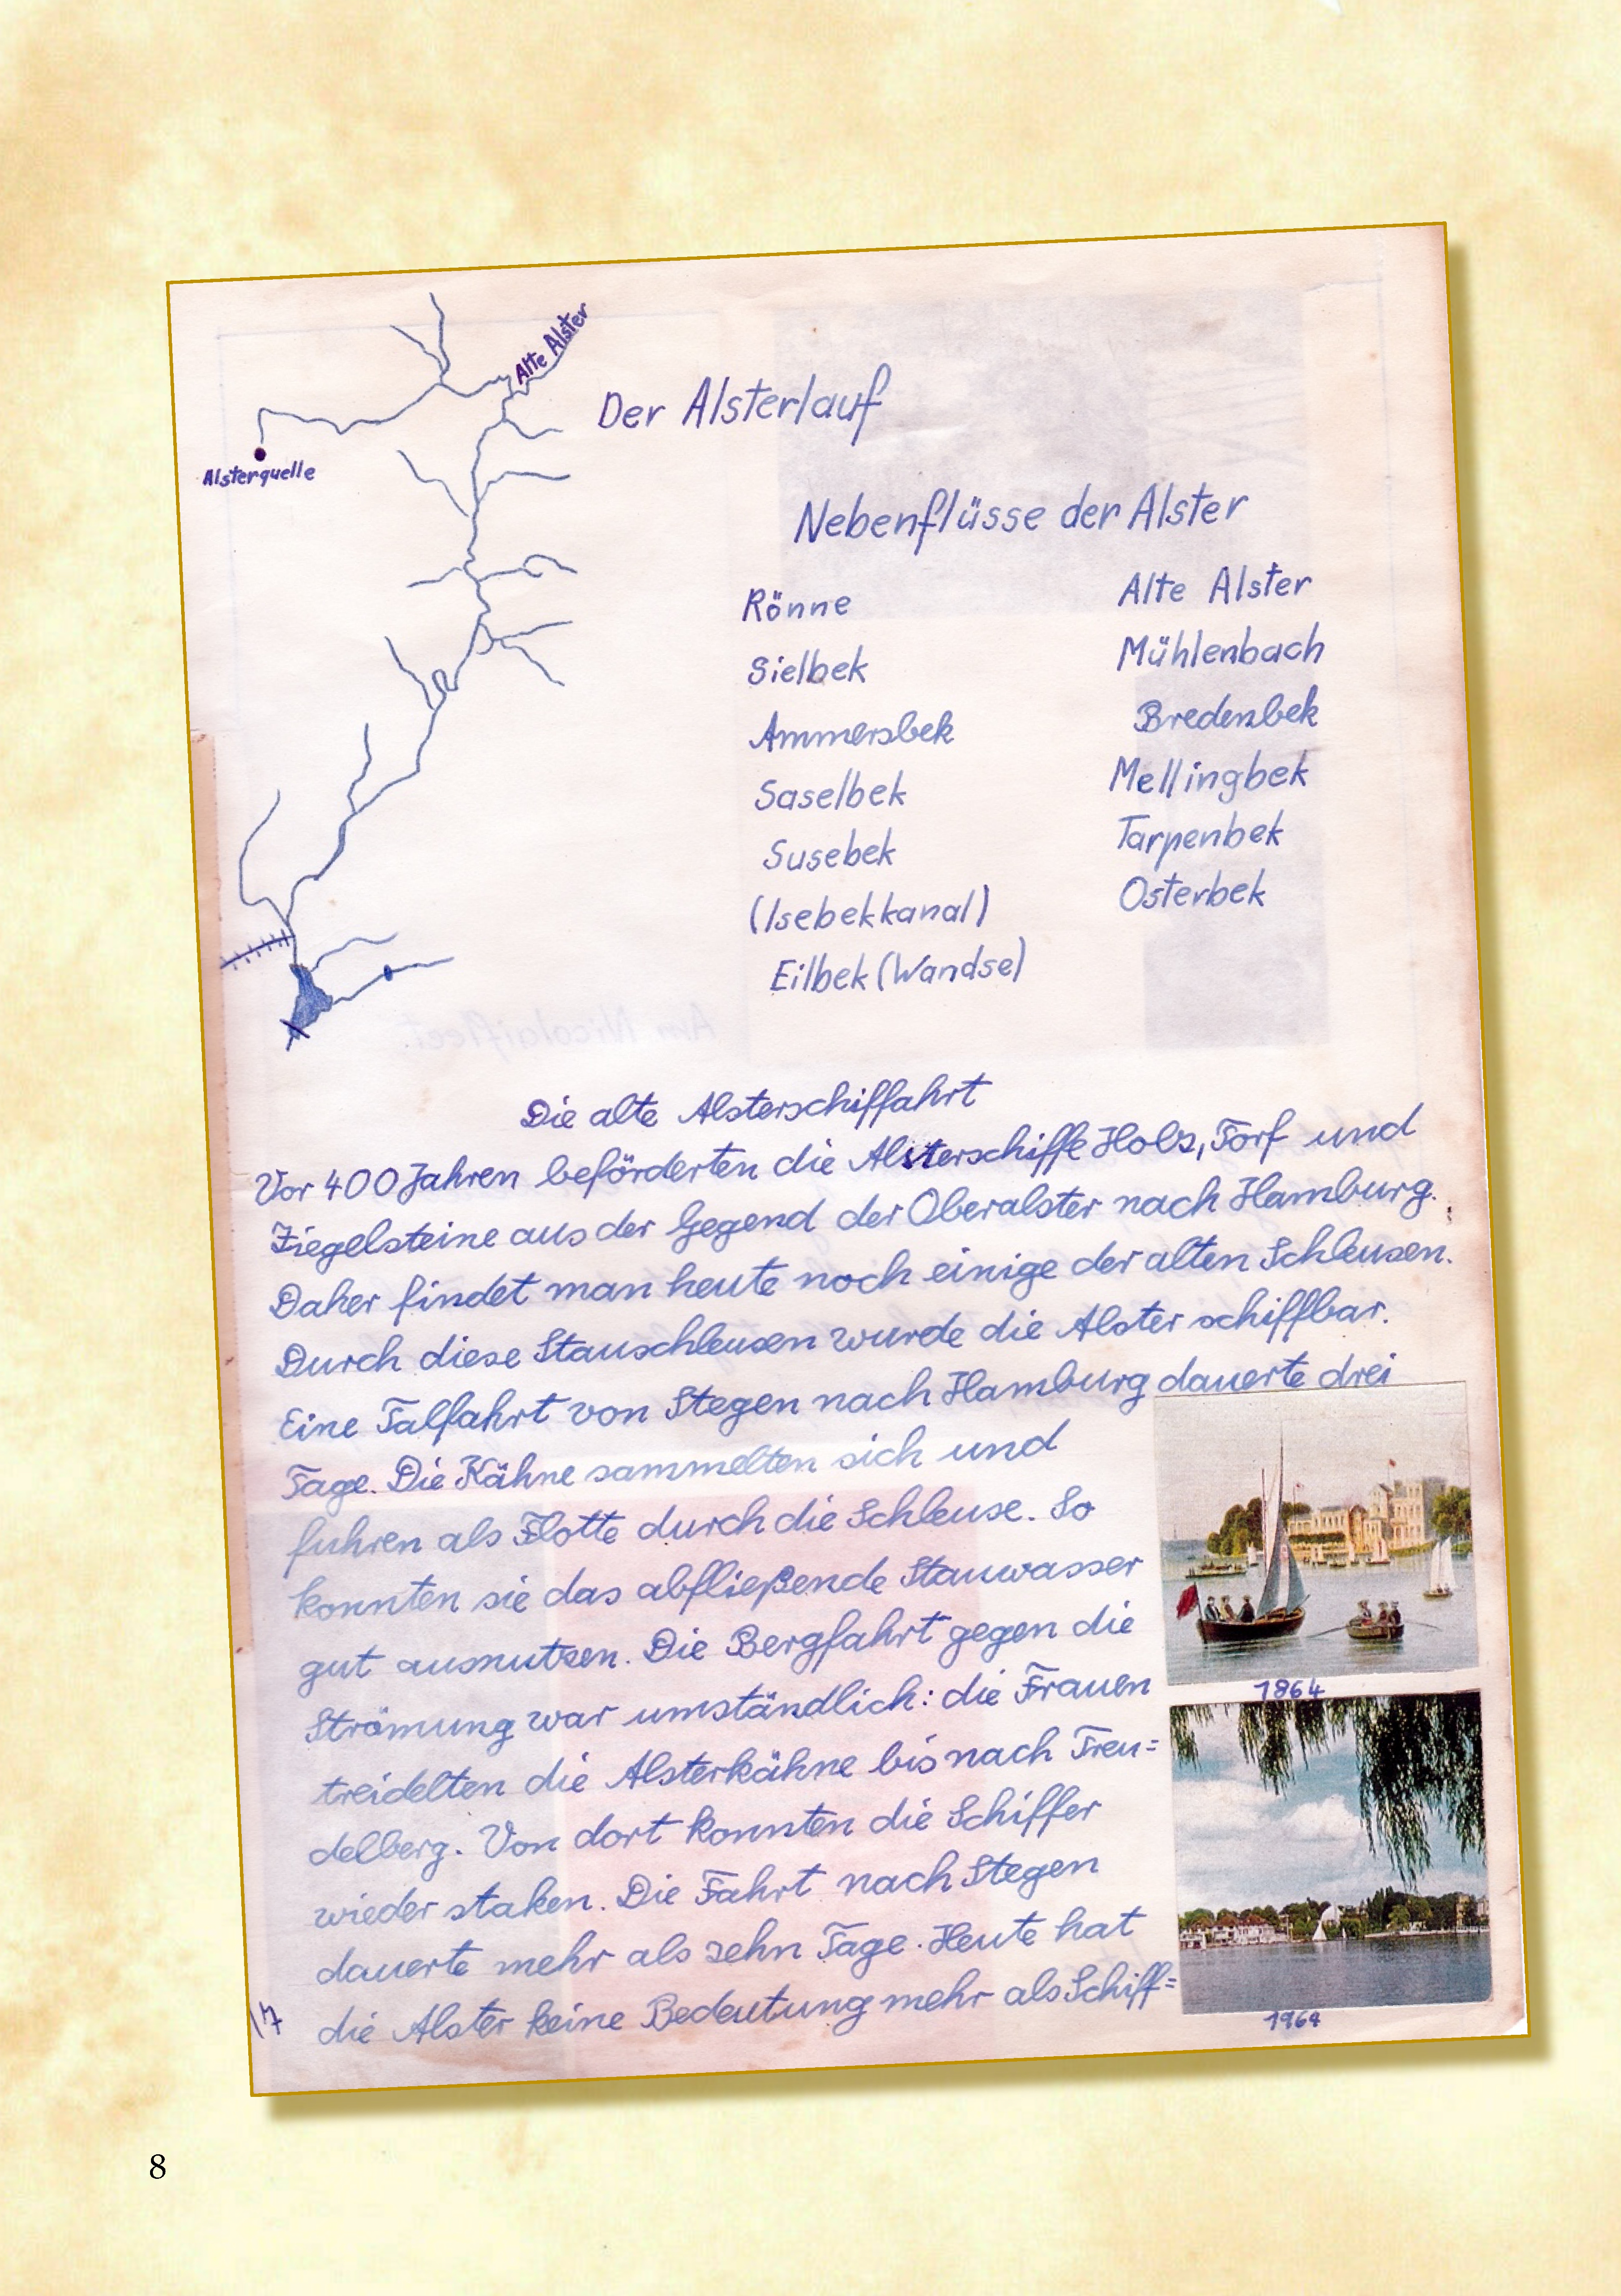 Alte Alster
Der Alsterlauf
Alsterquelle
Nebenflüsse der Alster
Rönne
Alte Alster
Sielbek
Mühlenbach
Ammersbek
Bredenbek
Saselbek
Mellingbek
Susebek
Tarpenbek
(Isebekkanal)
Osterbek
Eilbek (Wandse)
Am Nicolaifleet
Die alte Alsterschiffahrt
Vor 400 Jahren beförderten die Alsterschiffe Holz, Torf und
Ziegelsteine aus der Gegend der Oberalster nach Hamburg.
Daher findet man heute noch einige der alten Schleusen.
Durch diese Stauschleusen wurde die Alster schiffbar.
Eine Talfahrt von Stegen nach Hamburg dauerte drei
Tage. Die Kähne sammelten sich und
fuhren als Flotte durch die Schleuse. So
konnten sie das abfließende Stauwasser
gut ausnutzen. Die Bergfahrt gegen die
Strömung war umständlich: die Frauen
treidelten die Alsterkähne bis nach Treu=
delberg. Von dort konnten die Schiffer
wieder staken. Die Fahrt nach Stegen
dauerte mehr als zehn Tage. Heute hat
die Alster keine Bedeutung mehr als Schiff=
1864
1964
17
8